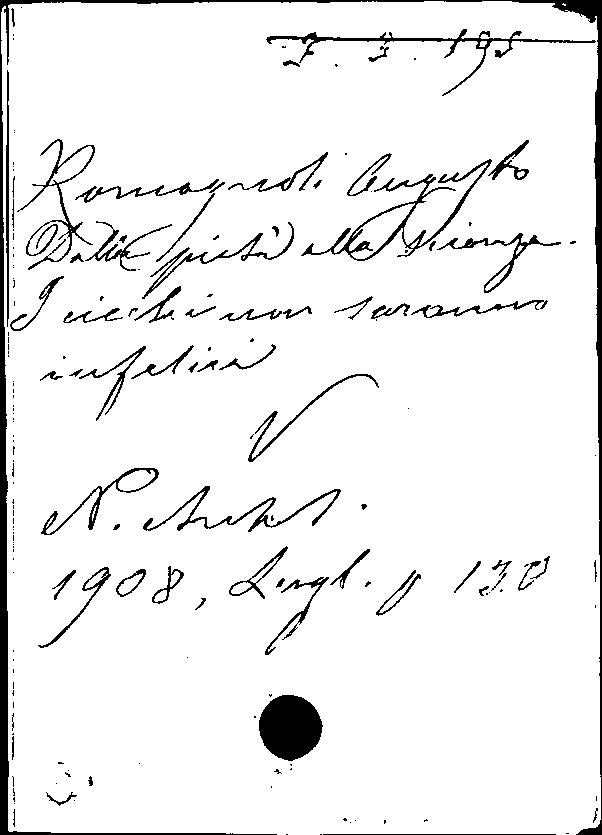 7. 3. 195
Romagnoli Augusto
Dalla pietà alla scienza.
I ciechi non saranno
infelici
V
N. Antol.
1908, Lugl. p 130